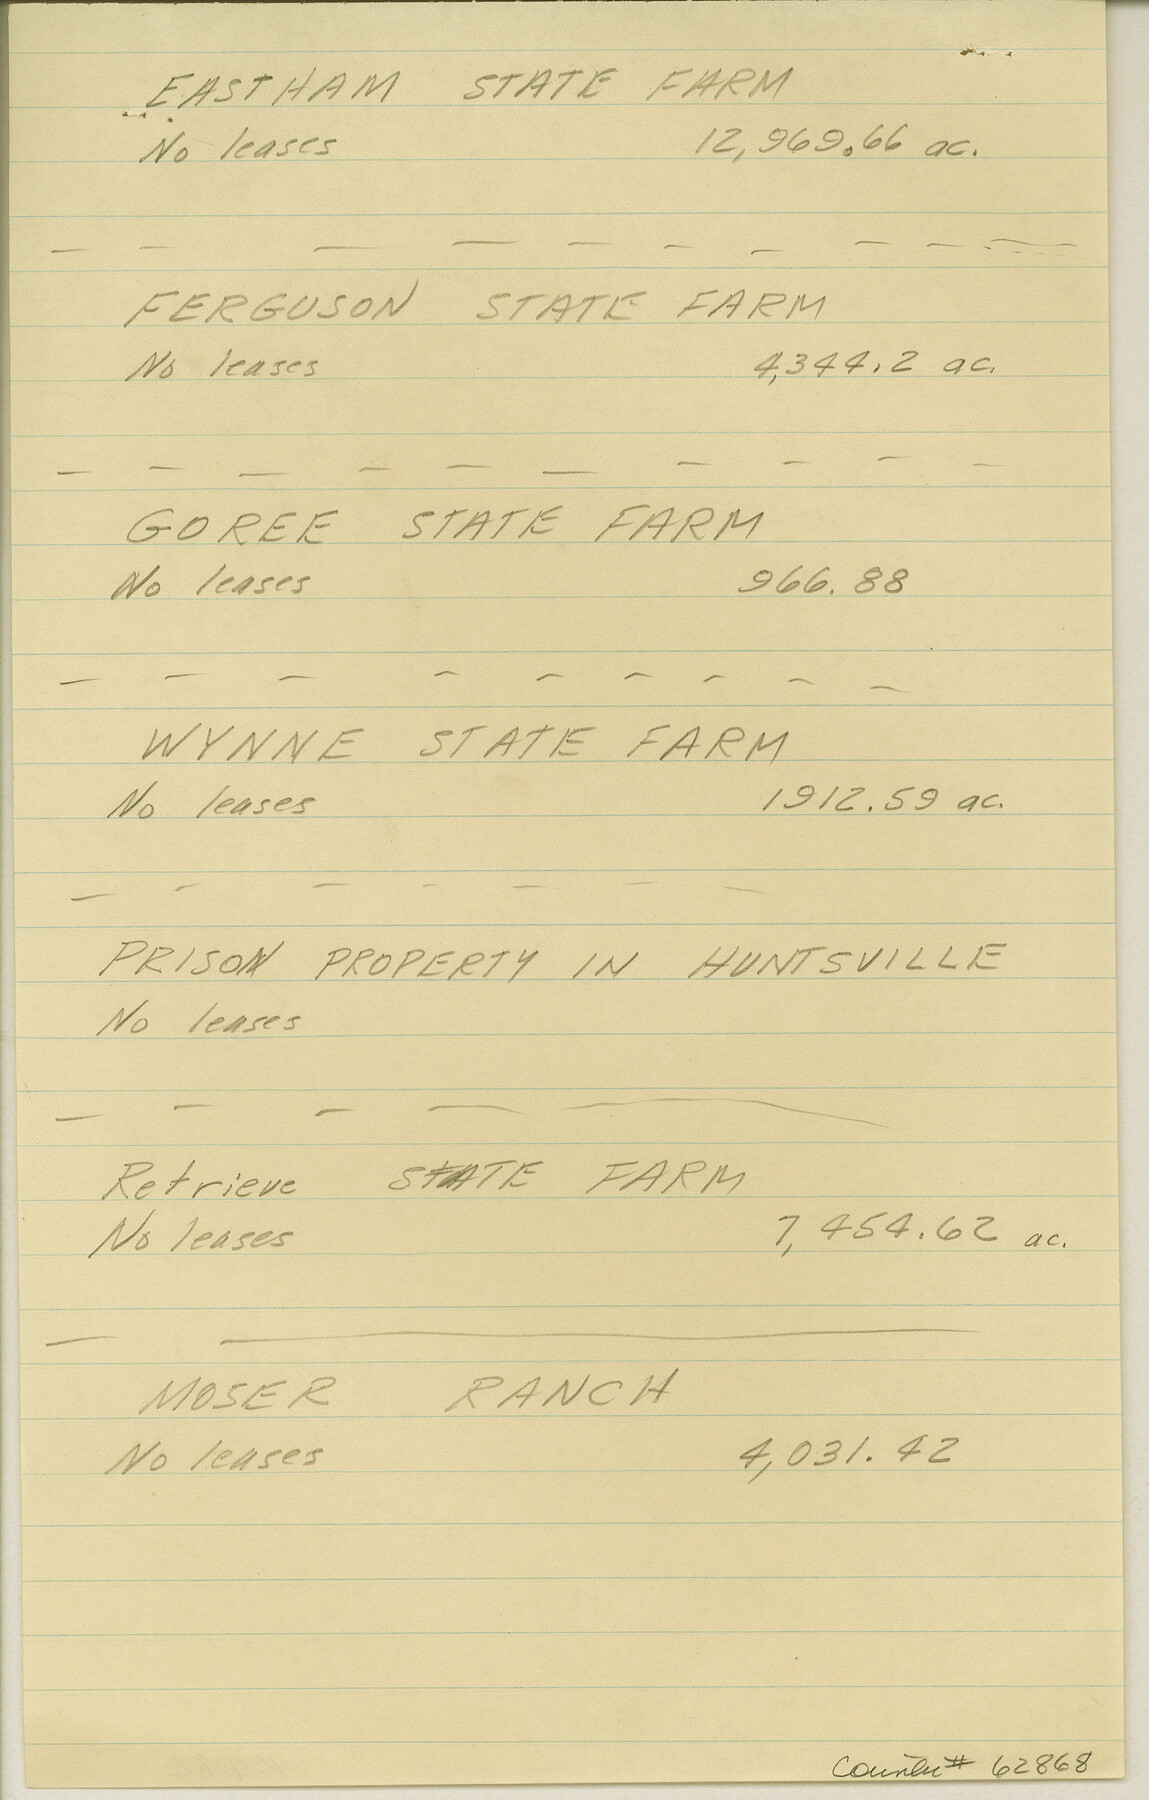 EASTHAM STATE FARM
No leases 12,969.66 ac.
FERGUSON STATE FARM
No leases 4,344.2 ac.
GOREE STATE FARM
No leases 966.88
WYNNE STATE FARM
No leases 1912.59 ac.
PRISON PROPERTY IN HUNTSVILLE
No leases
Retrieve STATE FARM
No leases 7,454.62 ac.
MOSER RANCH
No leases 4,031.42
Counter# 62868